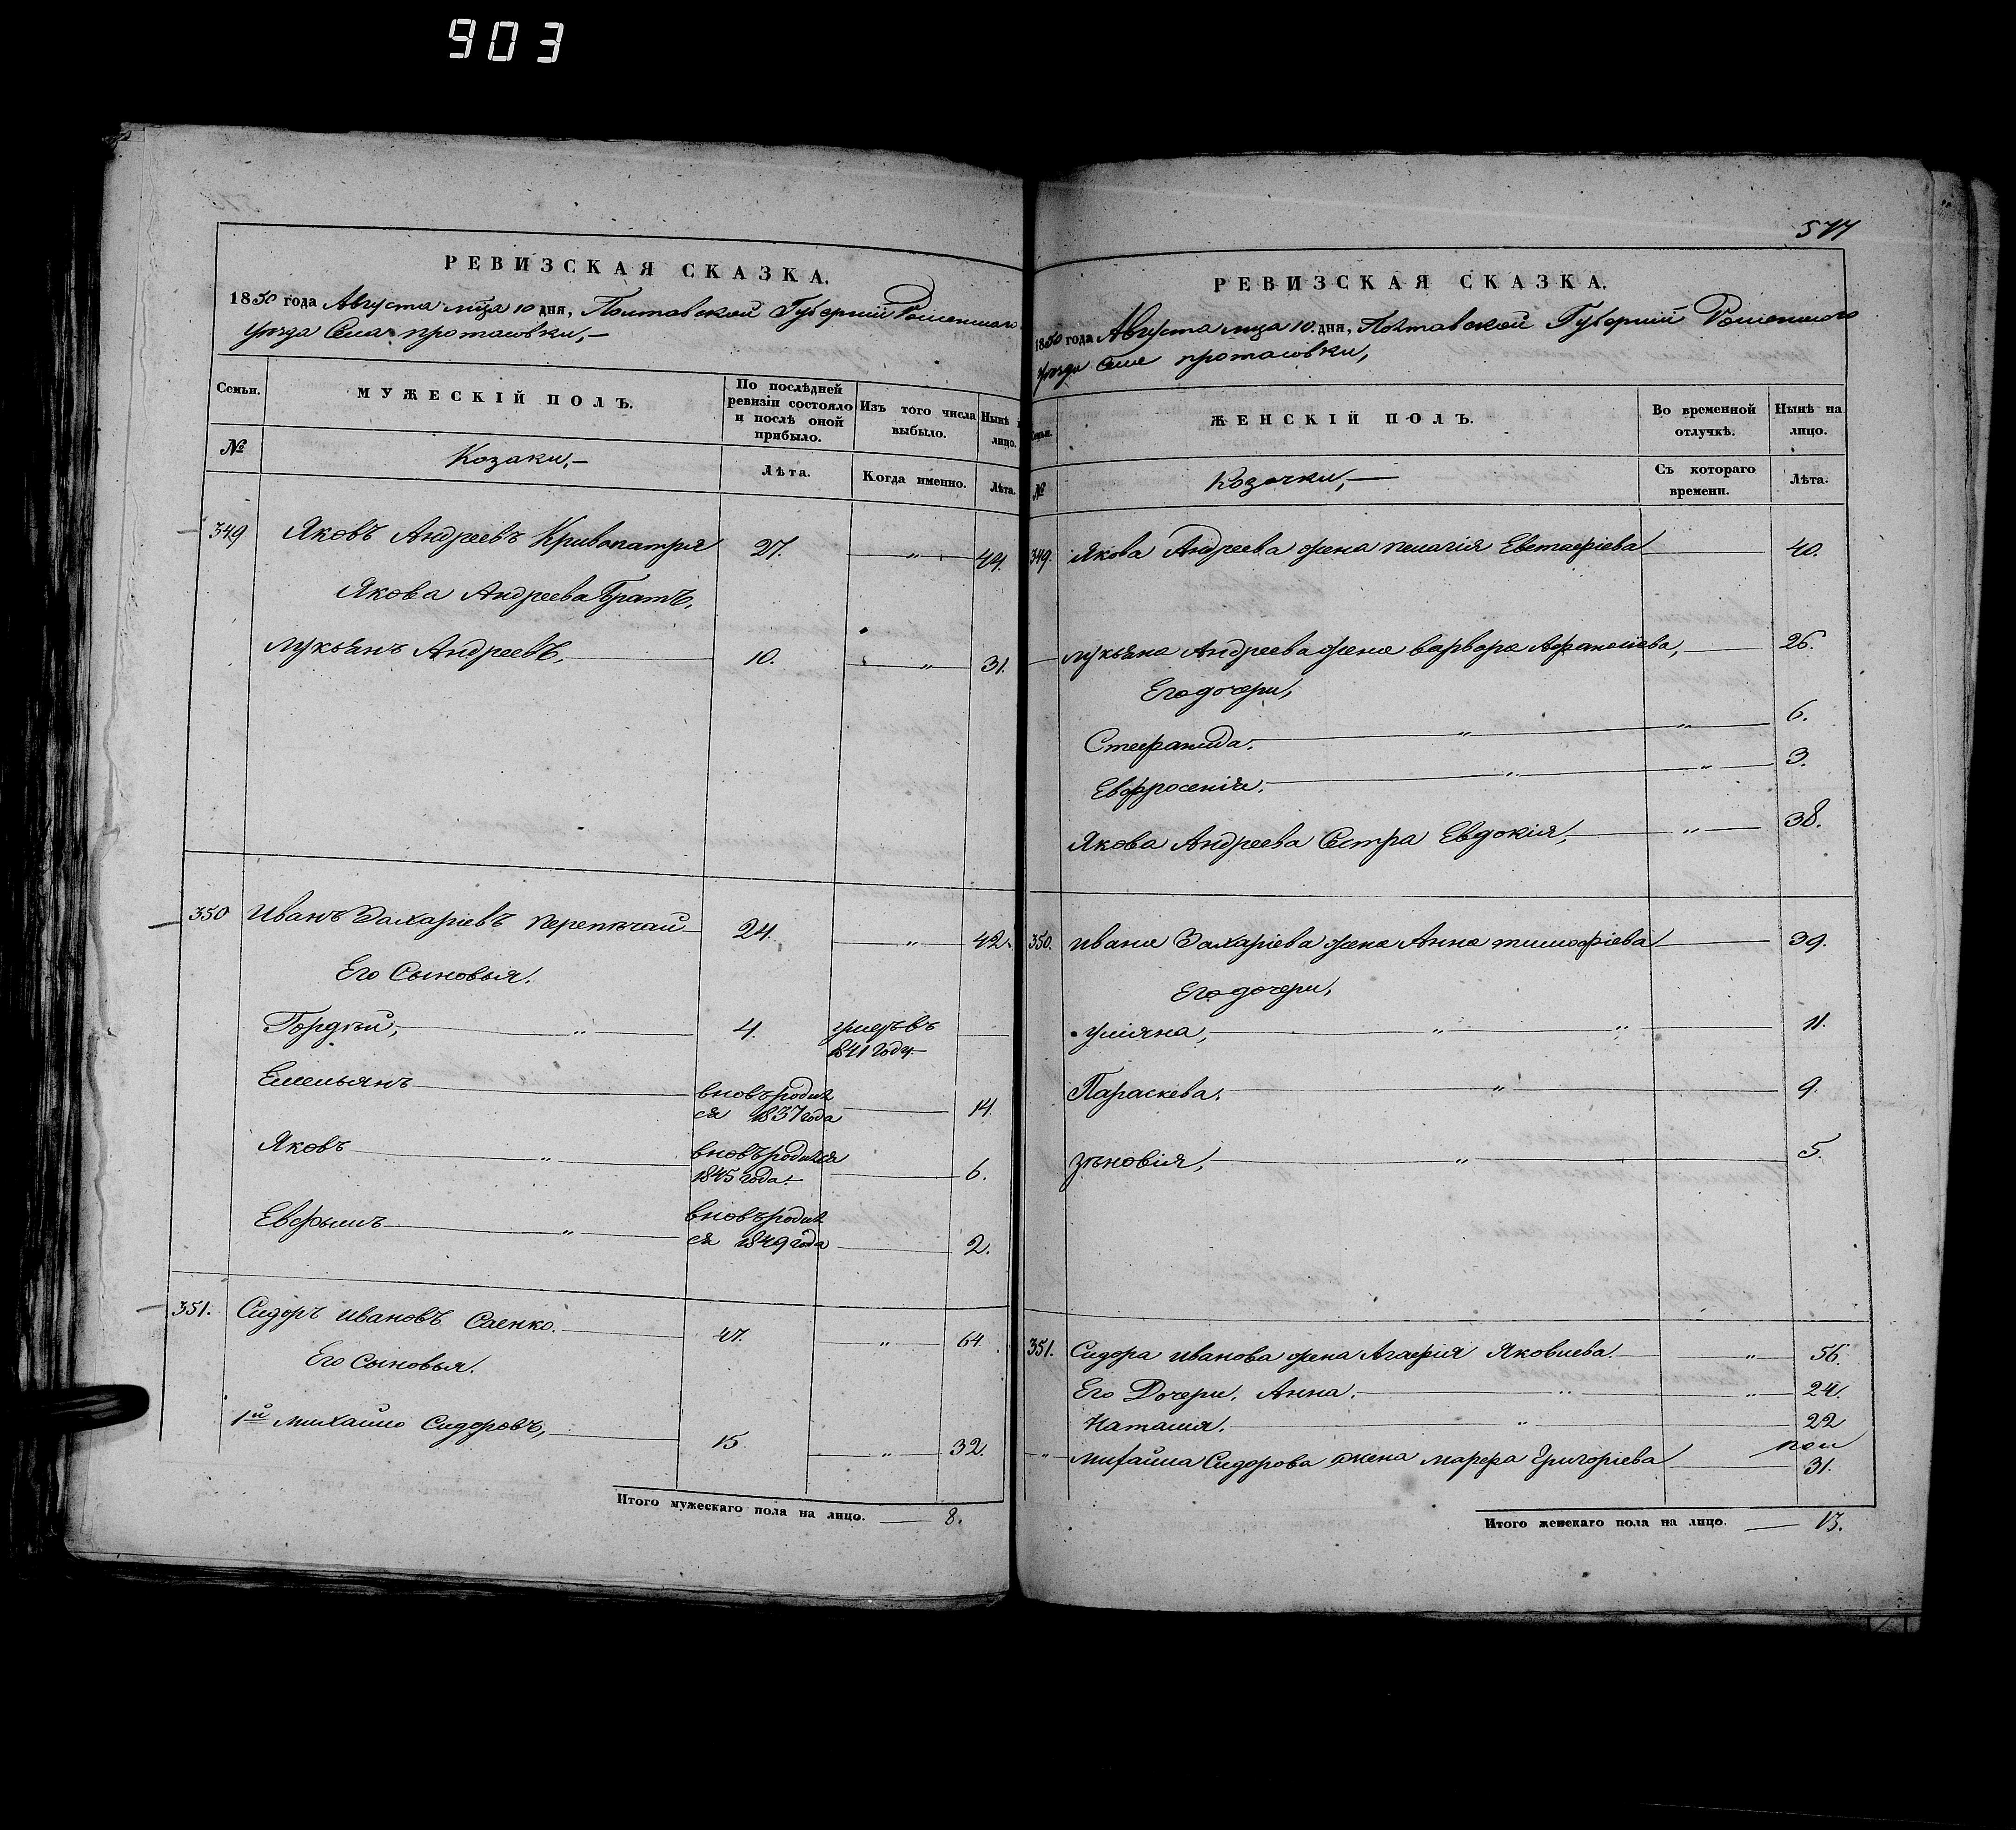 903
РЕВИЗСКАЯ СКАЗКА.
1850 года Августа мца 10 дня, Полтавской Губерніи Роменскаго
уезда Села протасовки,—
Семьи.
МУЖЕСКІЙ ПОЛЪ.
По послѣдней ревизіи состояло и послѣ оной прибыло.
Изъ того числа выбыло.
Нынѣ лицо.
№
Козаки,—
Лѣта.
Когда именно.
Лѣта.
349 Яковъ Андреевъ Кривопатря 27. — " — 44.
Якова Андреева Братъ,
Лукьянъ Андреевъ, 10. — " — 31.
350 Иванъ Захаріевъ Перепечай 24. — " — 42.
Его Сыновья.
Гордѣй, " 4. умеръ въ 1841 году —
Емельянъ вновь родил
ся 1837 года 14.
Яковъ " вновь родился
1845 года. 6.
Евфимъ " вновь родил
ся 1849 года 2.
351. Сидоръ Ивановъ Саенко. 47. — " — 64.
Его Сыновья.
1й Михайло Сидоровъ, 15. — " — 32.
Итого мужескаго пола на лицо. — 8.
577
РЕВИЗСКАЯ СКАЗКА.
1850 года Августа мца 10. дня, Полтавской Губерніи Роменскаго
уезда Села протасовки,
Семьи.
ЖЕНСКІЙ ПОЛЪ.
Во временной отлучкѣ.
Нынѣ на лицо.
№
Козачки,—
Съ котораго времени.
Лѣта.
349. Якова Андреева жена Пелагія Евстафіева 40.
Лукьяна Андреева жена варвара Афанасіева, 26.
Его дочери,
Стефанида. " " 6.
Евфросенія. " " 3.
Якова Андреева Сестра Евдокія, " 38.
350. Ивана Захаріева жена Анна тимофіева 39.
Его дочери,
уліяна, " " 11.
Параскева. " 9.
зѣновія, " 5.
351. Сидора Иванова жена Агафія Яковлева. " 56.
Его Дочери, Анна. " " 24.
Наталія. " 22
" Михайла Сидорова жена марфа Григоріева 31.
Итого женскаго пола на лицо. — 13.